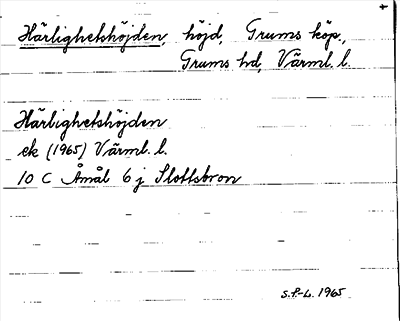 Härlighetshöjden, höjd, Grums köp.,
Grums hd, Värml. l.
Härlighetshöjden
ek (1965) Värml. l.
10 C Åmål 6 j Slottsbron
S.F.-L. 1965